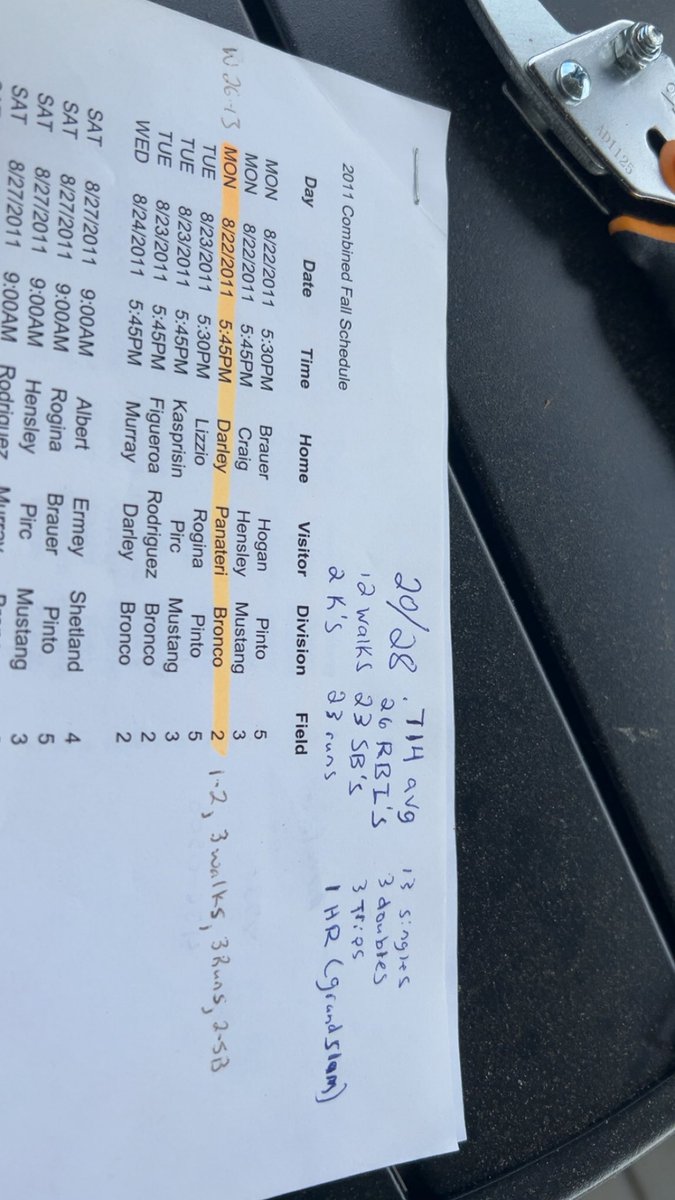 20/28 .714 avg 13 singles
26 RBI's 3 doubles
12 walks 23 SB's 3 Trips
2 K's 23 runs 1 HR (grandslam)
2011 Combined Fall Schedule
Day Date Time Home Visitor Division Field
MON 8/22/2011 5:30PM Brauer Hogan Pinto 5
MON 8/22/2011 5:45PM Craig Hensley Mustang 3
W 26-13 MON 8/22/2011 5:45PM Darley Panateri Bronco 2 1-2, 3 walks, 3 Runs, 2-SB
TUE 8/23/2011 5:30PM Lizzio Rogina Pinto 5
TUE 8/23/2011 5:45PM Kasprisin Pirc Mustang 3
TUE 8/23/2011 5:45PM Figueroa Rodriguez Bronco 2
WED 8/24/2011 5:45PM Murray Darley Bronco 2
SAT 8/27/2011 9:00AM Albert Ermey Shetland 4
SAT 8/27/2011 9:00AM Rogina Brauer Pinto 5
SAT 8/27/2011 9:00AM Hensley Pirc Mustang 3
8/27/2011 9:00AM Rodriguez Murray
AD1125